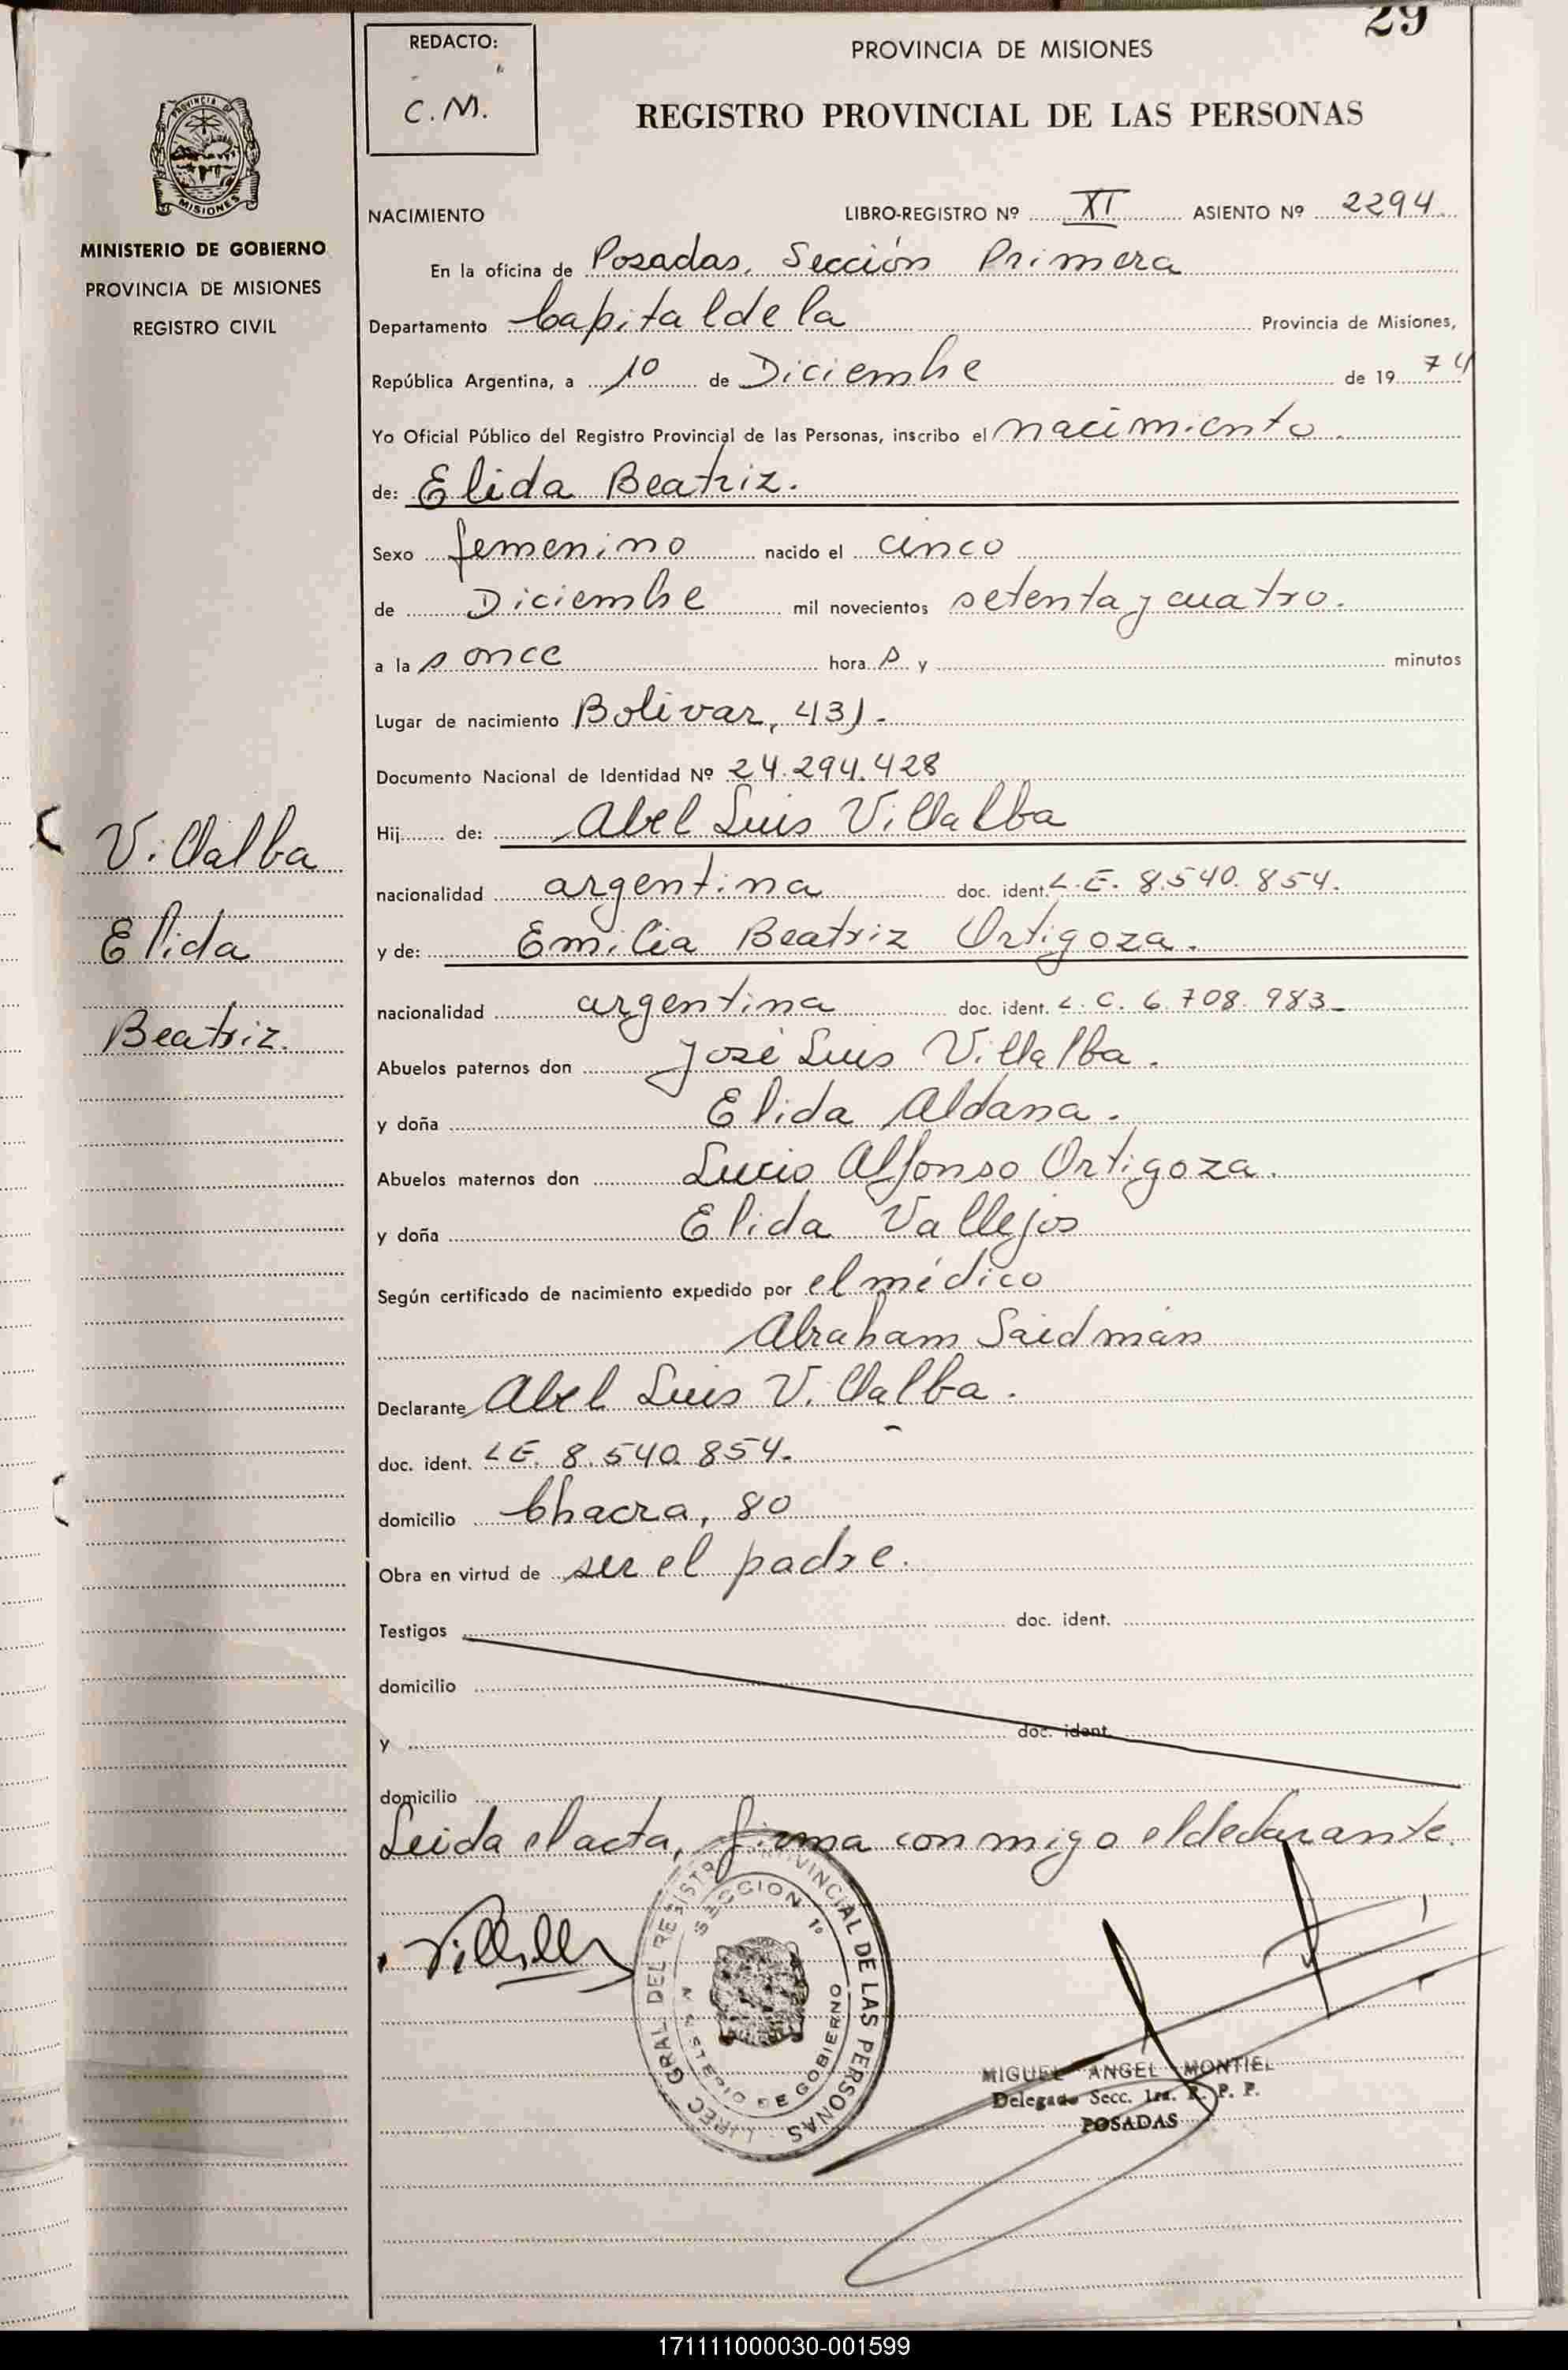 29
REDACTO:
C.M.
PROVINCIA DE MISIONES
REGISTRO PROVINCIAL DE LAS PERSONAS
PROVINCIA DE
MISIONES
MINISTERIO DE GOBIERNO
PROVINCIA DE MISIONES
REGISTRO CIVIL
NACIMIENTO LIBRO-REGISTRO Nº XI ASIENTO Nº 2294
En la oficina de Posadas, Sección Primera
Departamento Capital de la Provincia de Misiones,
República Argentina, a 10 de Diciembre de 19 74
Yo Oficial Público del Registro Provincial de las Personas, inscribo el nacimiento
de: Elida Beatriz.
Sexo femenino nacido el cinco
de Diciembre mil novecientos setenta y cuatro.
a la s once hora s y minutos
Lugar de nacimiento Bolivar, 431.
Documento Nacional de Identidad Nº 24.294.428
Hij de: Abel Luis Villalba
nacionalidad argentina doc. ident. L.E. 8.540.854.
y de: Emilia Beatriz Ortigoza.
nacionalidad argentina doc. ident. L.C. 6.708.983
Abuelos paternos don José Luis Villalba.
y doña Elida Aldana.
Abuelos maternos don Lucio Alfonso Ortigoza.
y doña Elida Vallejos
Según certificado de nacimiento expedido por el médico
Abraham Saidman
Declarante Abel Luis Villalba.
doc. ident. LE. 8.540.854.
domicilio Chacra, 80
Obra en virtud de ser el padre.
Testigos doc. ident.
domicilio
y doc. ident.
domicilio
Leida el acta, firma conmigo el declarante.
Villalba
Elida
Beatriz.
DIREC GRAL DEL REGISTRO PROVINCIAL DE LAS PERSONAS
SECCION 1º
MINISTERIO DE GOBIERNO
MIGUEL ANGEL MONTIEL
Delegado Secc. 1ra. R. P. P.
POSADAS
171111000030-001599